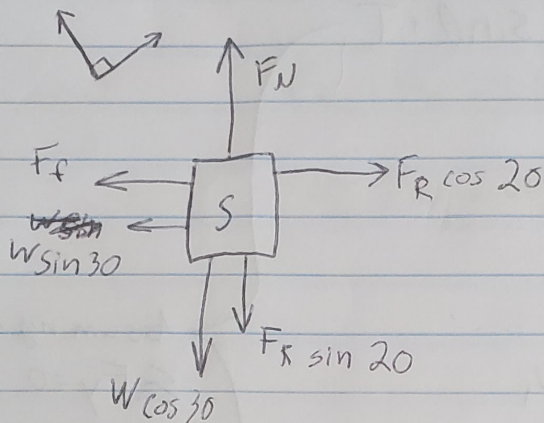 F_N
F_f
F_R cos 20
S
W sin 30
F_R sin 20
W cos 30